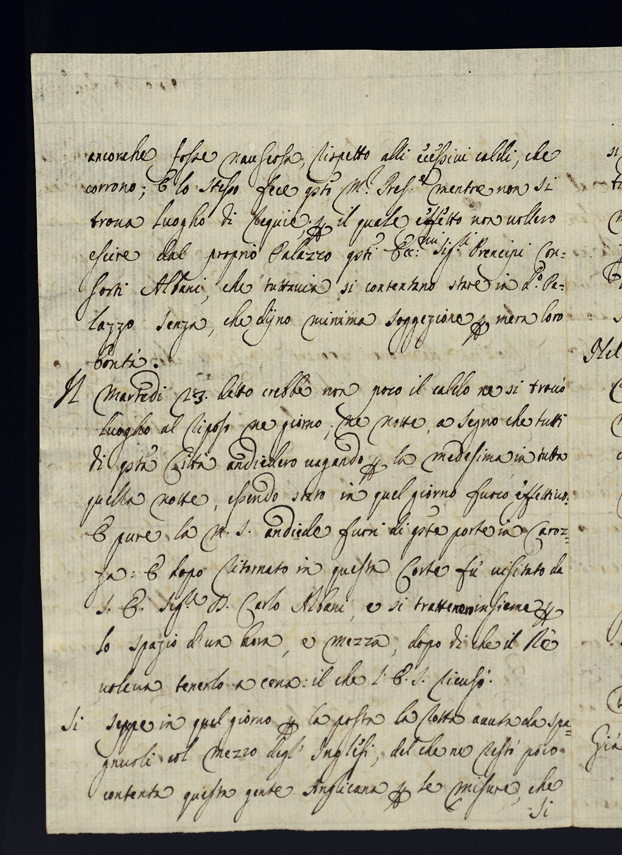 ancorche fosse nauseosa, rispetto alli eccessivi caldi, che
corrono; E lo stesso fece qsto M.r Pres.e mentre non si
trova luogho di Requie, p il quale effetto non vollero
escire dal proprio Palazzo qsti Ecc.mi Sig.ri Prencipi Con-
sorti Albani, che tuttavia si contentano stare in d.o Pa-
lazzo senza, che dijno minima soggezione p mera loro
bontà.
Il Martedi 23. detto crebbe non poco il caldo ne si trovò
luogho al riposo ne giorno, ne notte, a segno che tutti
di qsta Città andiedero vagando p la medesima in tutta
quella notte, essendo stato in quel giorno fuoco effettivo.
E pure la M. S. andiede fuori di qste porte in Caroz=
za: E dopo ritornato in questa Corte fù visitato da
S. E. Sig.re D. Carlo Albani, e si trattenne insieme p
lo spazio d'un hora, e mezza, dopo di che il Rè
voleva tenerlo a cena: il che l'E. S. ricusò.
Si seppe in quel giorno p la posta la rotta avuta da spa=
gnuoli col mezzo degl' Inglesi, del che ne restò poco
contenta questa gente Anglicana p le misure, che
si